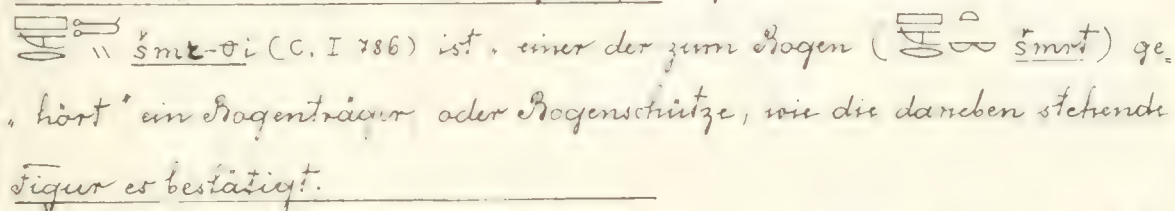 šmr-ϑi (C. I 786) ist „einer der zum Bogen (šmrt) ge=
„hört“ ein Bogenträger oder Bogenschütze, wie die daneben stehende
Figur es bestätigt.